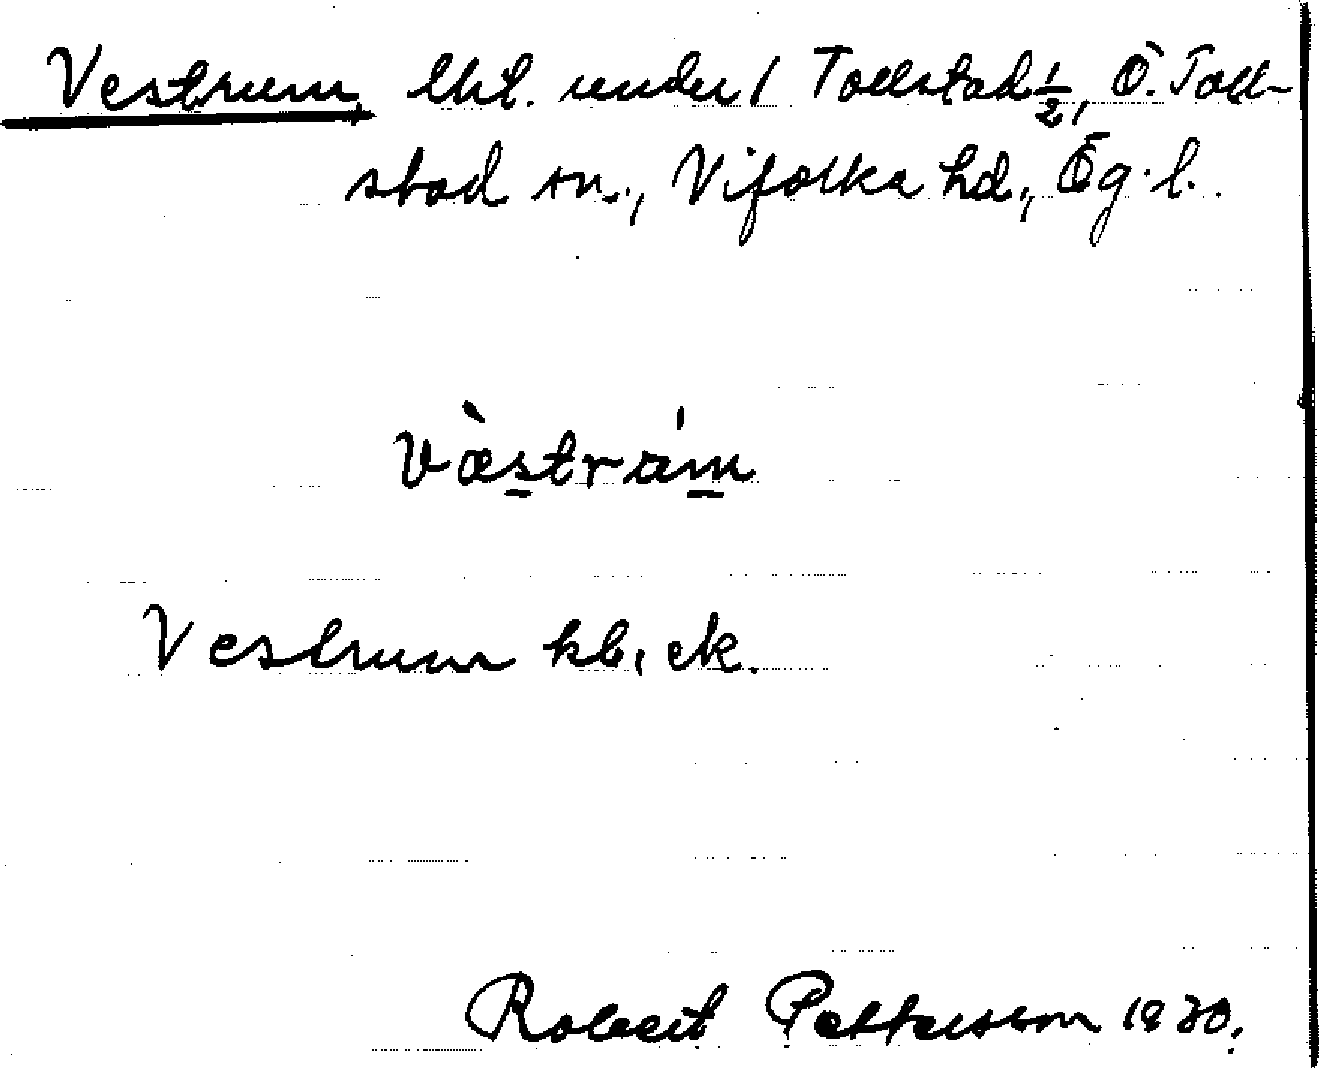 Vestrum, lht. under 1 Tollstad ½, Ö. Toll-
stad sn., Vifolka hd., Ög. l.
Væ̀strúm
Vestrum kb., ek.
Robert Pettersson 1930.